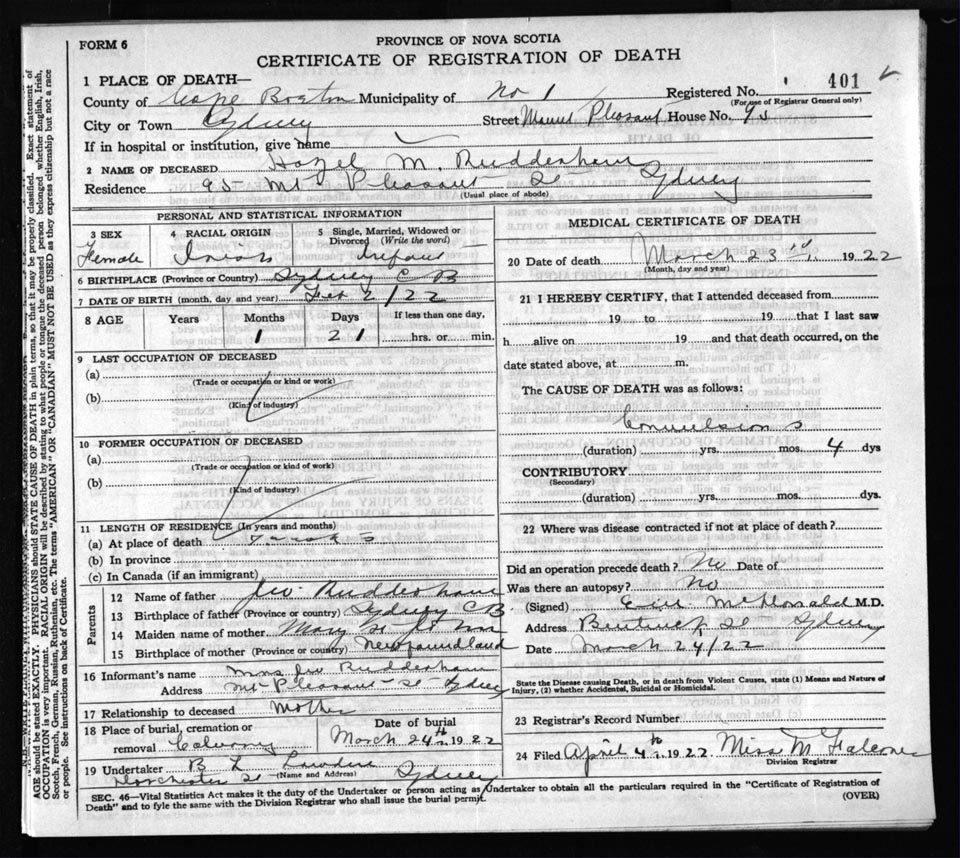 FORM 6
PROVINCE OF NOVA SCOTIA
CERTIFICATE OF REGISTRATION OF DEATH
1 PLACE OF DEATH—
Registered No. 401
(For use of Registrar General only)
County of Cape Breton Municipality of No 1
City or Town Sydney Street Mount Pleasant House No. 95
If in hospital or institution, give name
2 NAME OF DECEASED Hazel M. Rudderham
Residence 95 Mt Pleasant St Sydney
(Usual place of abode)
PERSONAL AND STATISTICAL INFORMATION
3 SEX Female
4 RACIAL ORIGIN Irish
5 Single, Married, Widowed or Divorced (Write the word) infant
6 BIRTHPLACE (Province or Country) Sydney C B
7 DATE OF BIRTH (month, day and year) Feb 2/22
8 AGE Years Months Days If less than one day,
1 21 hrs. or min.
9 LAST OCCUPATION OF DECEASED
(a)
(Trade or occupation or kind or work)
(b)
(Kind of industry)
10 FORMER OCCUPATION OF DECEASED
(a)
(Trade or occupation or kind of work)
(b)
(Kind of industry)
11 LENGTH OF RESIDENCE (In years and months)
(a) At place of death
(b) In province
(c) In Canada (if an immigrant)
Parents
12 Name of father Rudderham
13 Birthplace of father (Province or country) Sydney CB
14 Maiden name of mother Mary
15 Birthplace of mother (Province or country) Newfoundland
16 Informant's name Mrs Rudderham
Address Mt Pleasant St Sydney
17 Relationship to deceased Mother
18 Place of burial, cremation or removal Calvary
Date of burial March 24th 1922
19 Undertaker B L
Dorchester St (Name and Address) Sydney
MEDICAL CERTIFICATE OF DEATH
20 Date of death March 23rd 1922
(Month, day and year)
21 I HEREBY CERTIFY, that I attended deceased from
19 to 19 that I last saw
h alive on 19 and that death occurred, on the
date stated above, at m.
The CAUSE OF DEATH was as follows:
Convulsions
(duration) yrs. mos. 4 dys
CONTRIBUTORY
(Secondary)
(duration) yrs. mos. dys.
22 Where was disease contracted if not at place of death?
Did an operation precede death? No Date of
Was there an autopsy? No
(Signed) McDonald M.D.
Address Bentinck St Sydney
Date March 24/22
State the Disease causing Death, or in death from Violent Causes, state (1) Means and Nature of
Injury, (2) whether Accidental, Suicidal or Homicidal.
23 Registrar's Record Number
24 Filed April 4th 1922 Miss M Falconer
Division Registrar
SEC. 46—Vital Statistics Act makes it the duty of the Undertaker or person acting as Undertaker to obtain all the particulars required in the "Certificate of Registration of
Death" and to fyle the same with the Division Registrar who shall issue the burial permit.
(OVER)
AGE should be stated EXACTLY. PHYSICIANS should STATE CAUSE OF DEATH in plain terms, so that it may be properly classified. Exact statement of
OCCUPATION is very important. RACIAL ORIGIN will be described by stating to what people or tongue the deceased person belonged whether English, Irish,
Scotch, French, German, Russian, Ruthenian, etc. The terms "AMERICAN" OR "CANADIAN" MUST NOT BE USED as they express citizenship but not a race
or people. See instructions on back of Certificate.